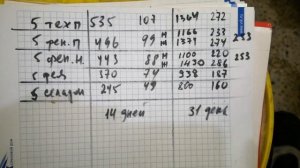 5 техп 535 107 1364 272
5 фен.п 496 99 м 1166 233
ж 1371 274 253
5 фен.н. 443 88 м 1100 220
ж 1430 286 253
5 фея 370 74 938 187
5 складм 245 49 800 160
14 дней 31 день